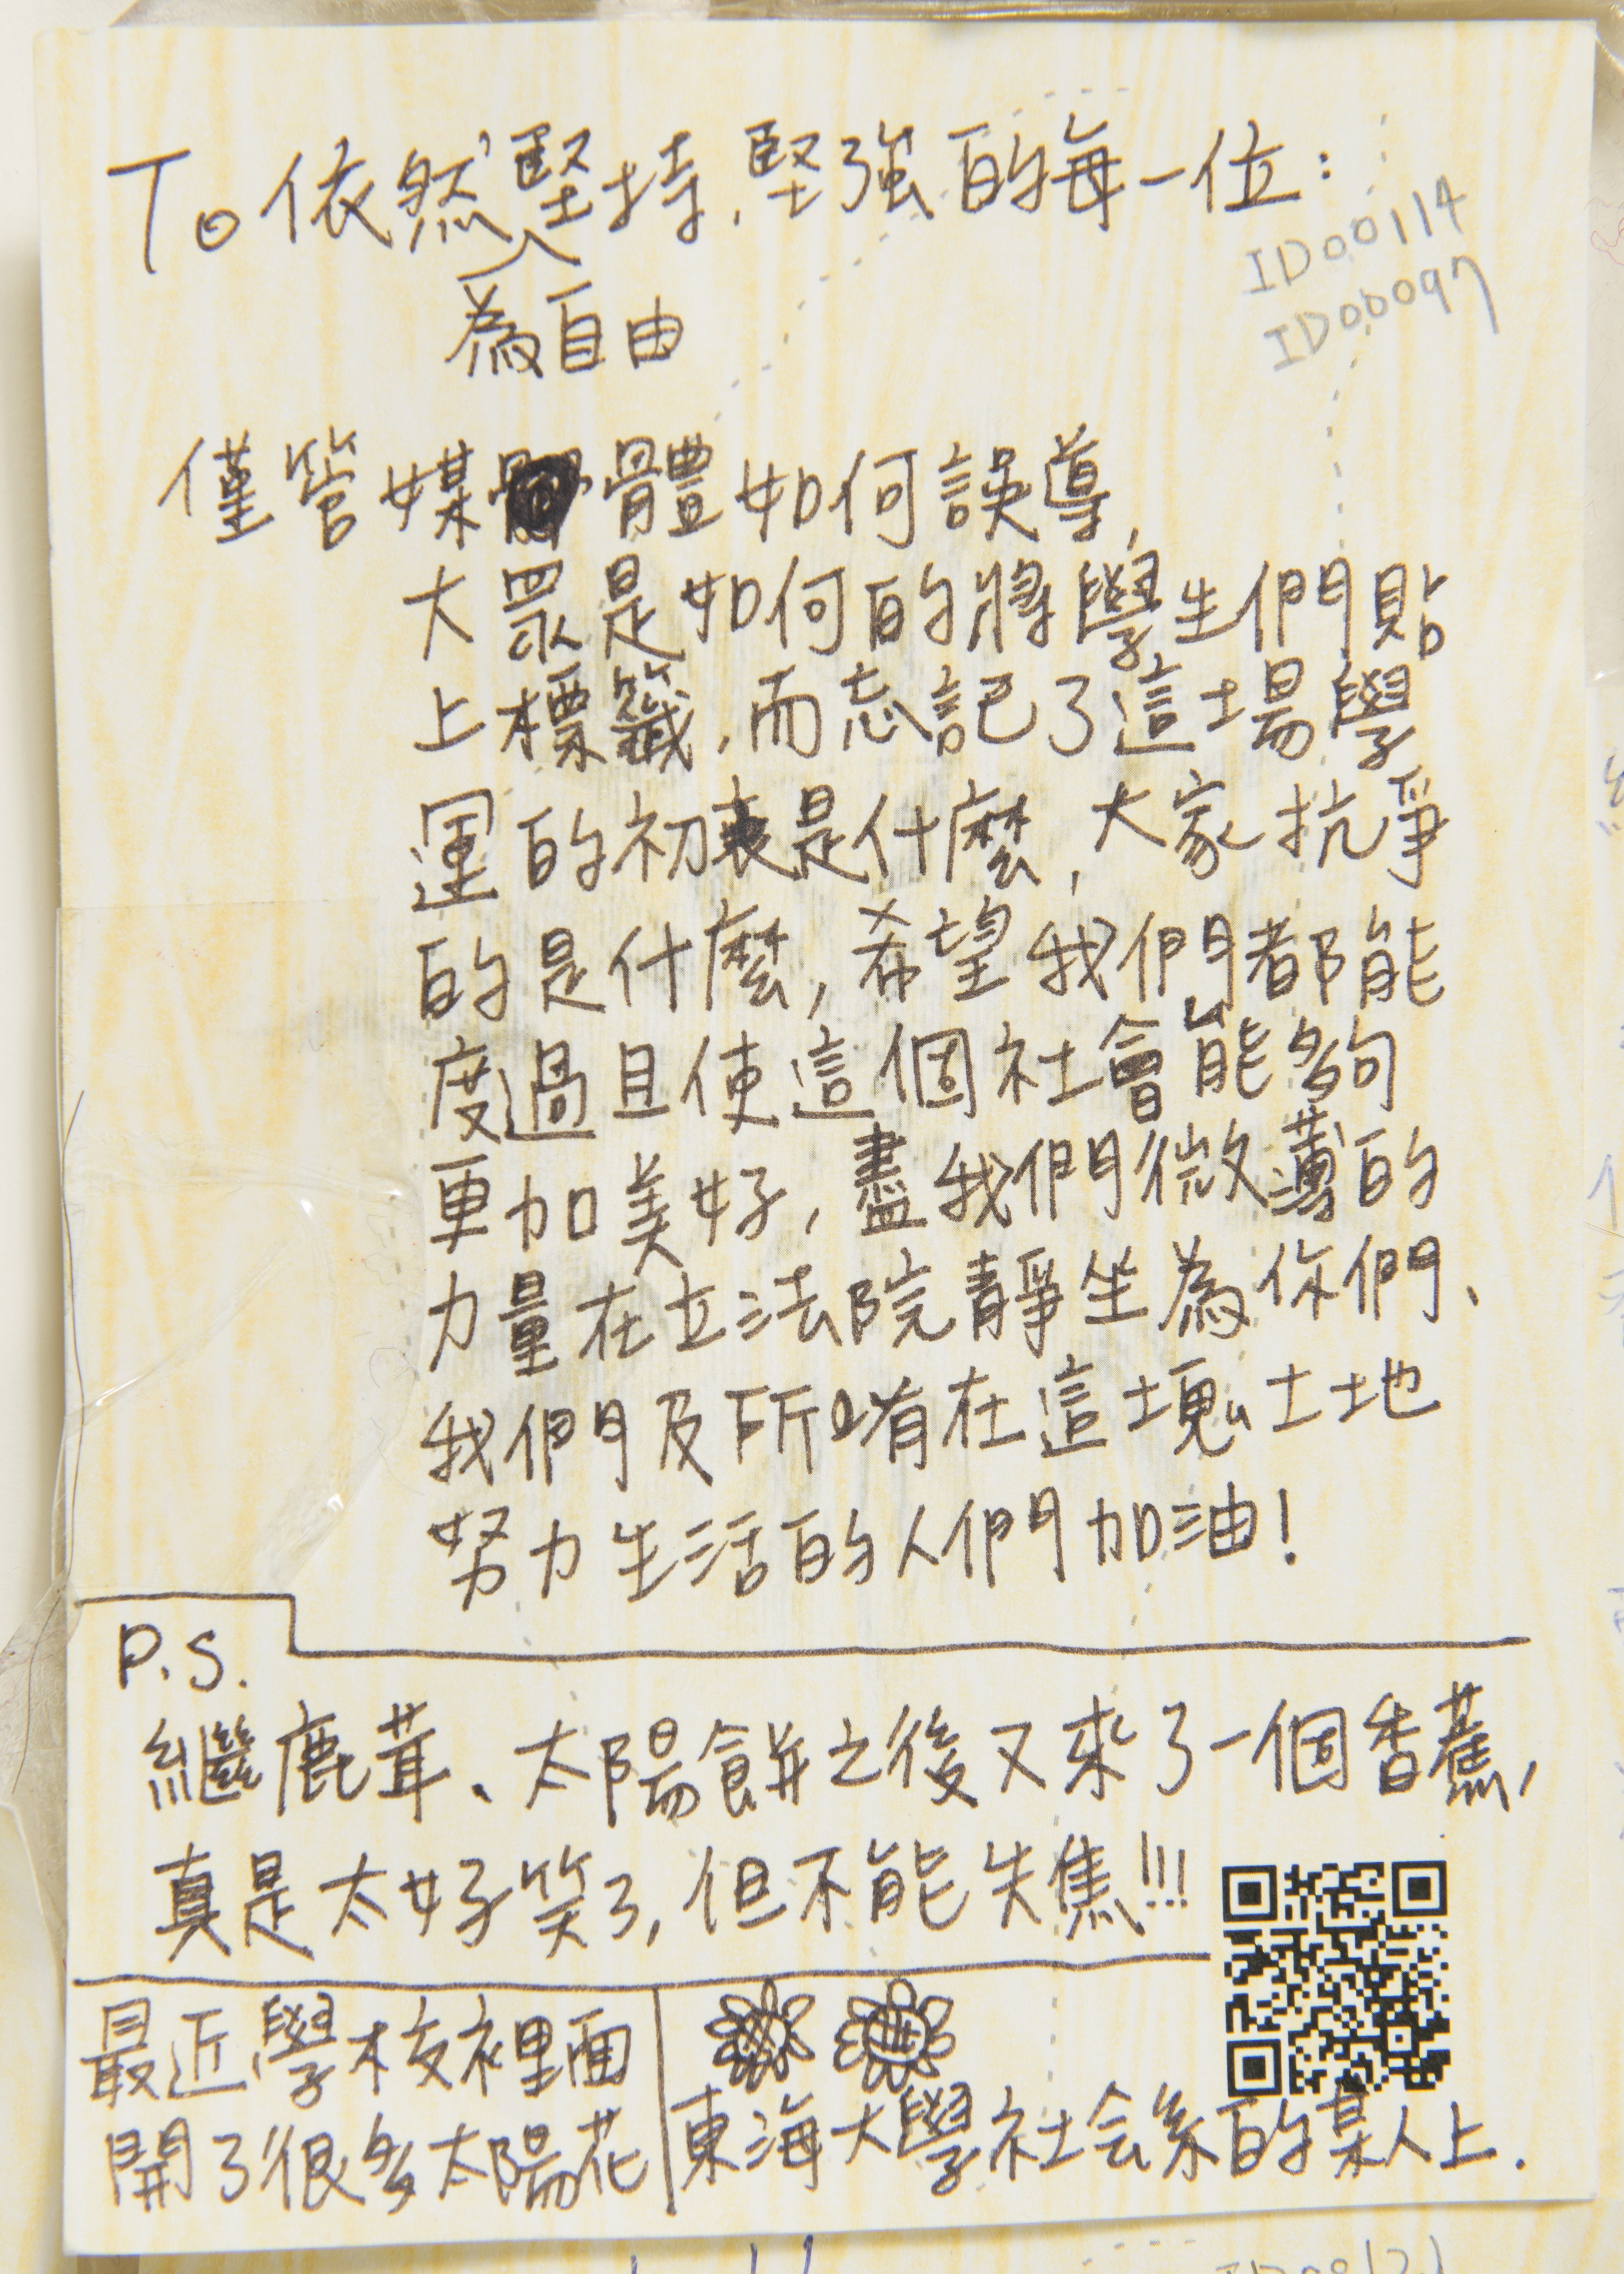 To 依然堅持,堅強的每一位:
為自由
ID00114
ID00097
僅管媒體如何誤導,
大眾是如何的將學生們貼
上標籤,而忘記了這場學
運的初衷是什麼,大家抗爭
的是什麼,希望我們都能
度過且使這個社會能夠
更加美好,盡我們微薄的
力量在立法院靜坐為你們、
我們及所有在這塊土地
努力生活的人們加油!
P.S.
繼鹿茸、太陽餅之後又來了一個香蕉,
真是太好笑了,但不能失焦!!!
最近學校裡面
開了很多太陽花
東海大學社会系的某人上.